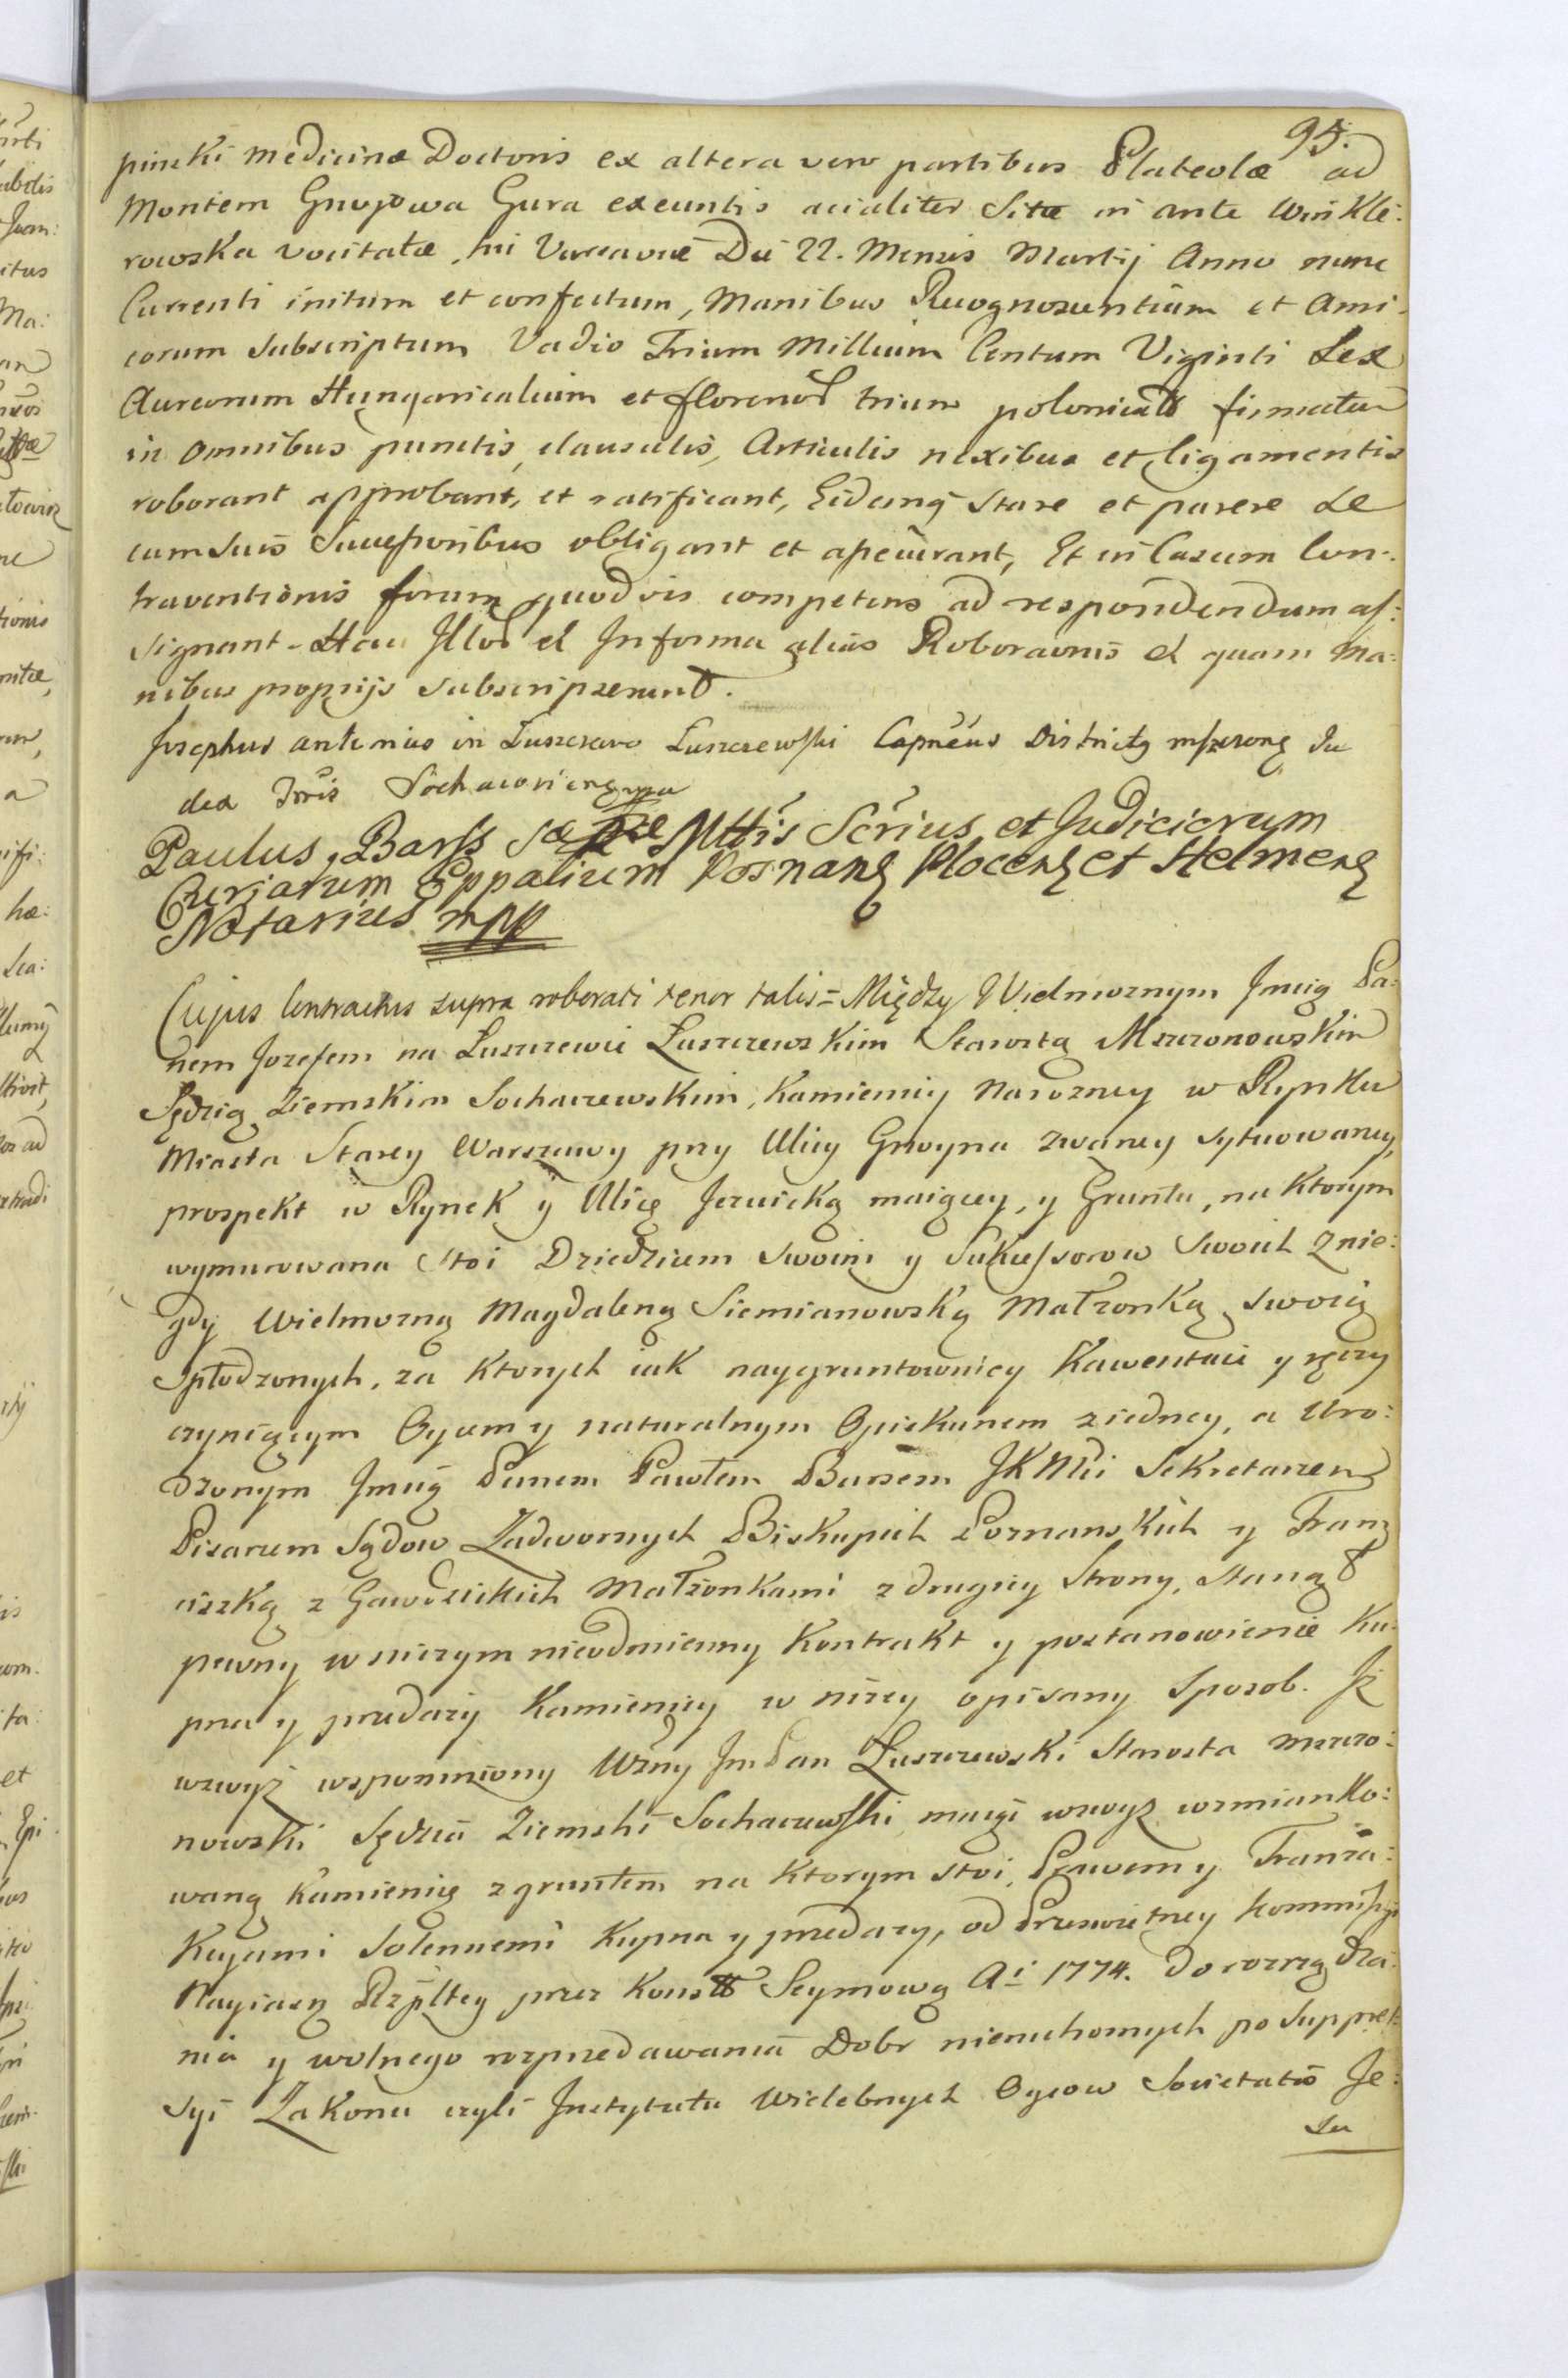 95.
pinski Medicinæ Doctoris ex altera vero partibus Plateolæ ad
Montem Gnojowa Gura exeuntis acialiter Sitæ in ante Winkle:
rowska vocitatæ, hic Varsaviæ Die 22. Mensis Martij Anno nunc
Currenti initum et confectum, Manibus Recognoscentium et Ami-
corum subscriptum Vadio Trium Millium Centum Viginti Sex
Aureorum Hungaricalium et floreno trium polonical firmatum
in omnibus punctis, clausulis, Articulis nexibus et ligamentis
roborant approbant, et ratificant, Eidemq stare et parere se
cum suis Successoribus obligant et assecurant, Et in Casum Con-
traventionis forum quodvis competens ad respondendum as:
signant - Hac Illos et Informa alias Roboraonis et quam Ma:
nibus proprijs subscripserunt.
Josephus antonius in Łuszczewo Łuszczewski Capneus Districtg mszczong Ju
dex Trris Sochaconiengmpa
Paulus, Barss Sæ Ræ Mttis Scrius et Judiciorum
Curiarum Eppalium Posnang Ploceng et Helmeng
Notarius mpp
Cujus Contractus supra roborati tenor talis = Między Wielmoznym Jmcią Pa:
nem Jozefem na Łuszczewie Łuszczewskim Starostą Mszczonowskim
Sędzią Ziemskim Sochaczewskim, Kamienicy Narozney w Rynku
Miasta Starey Warszawy przy Ulicy Gnoyna zwaney sytuowaney,
prospekt w Rynek y Ulicę Jezuicką maiącey, y Gruntu, na Ktorym
wymurowana stoi Dziedzicem swoim y Sukcessorow swoich z nie:
gdy Wielmozną Magdaleną Siemianowską Małzonką swoią
spłodzonych, za Ktorych iak naygruntowniey Kawentuie y ręczy
czyniącym Oycem y naturalnym Opiekunem z iedney, a Uro:
dzonym Jmcią Panem Pawłem Barsem JKMci Sekretarzem
Pisarzem Sądow Zadwornych Biskupich Poznanskich y Fran
ciszką z Gawdzickich Małżonkami z drugiey Strony, stanął
pewny w niczym nieodmienny Kontrakt y postanowienie Ku:
pna y przedaży Kamienicy w niżey opisany Sposob. Jż
wzwyż wspomniony Wzny Jm Pan Łuszczewski Starosta mszczo:
nowski Sędzia Ziemski Sochaczewski maiąc wzwyz wzmianko:
waną Kamienicę z gruntem na Ktorym stoi, Prawem y Tranza:
Kcyami Solennemi Kupna y przedazy, od Przeswietney Kommissyi
Nayiasn Rzpltey przez Konstt Seymową Ai 1774. do rozrządza
nia y wolnego rozprzedawania Dobr nieruchomych po Suppres:
syi Zakonu czyli Jnstytutu Wielebnych Oycow Societatis Je:
su